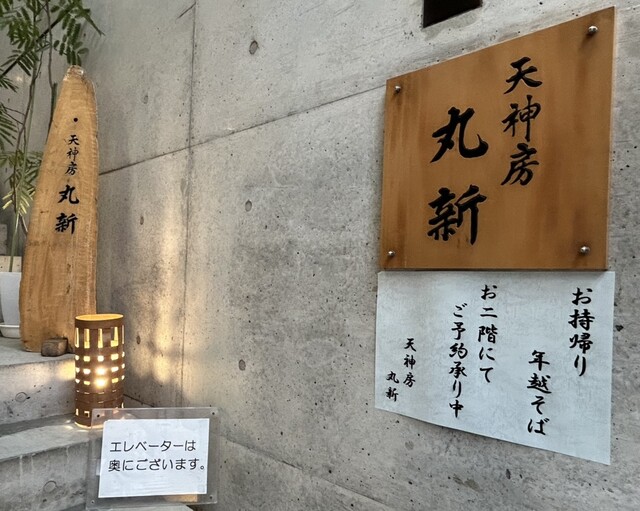 天神房
丸新
天神房
丸新
お持帰り
年越そば
お二階にて
ご予約承り中
天神房
丸新
エレベーターは
奥にございます。